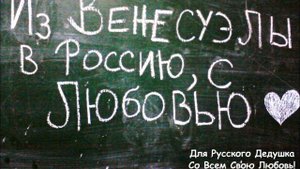 Из Венесуэлы
в Россию, с
Любовью
Для Русского Дедушка
Со Всем Свою Любовь!